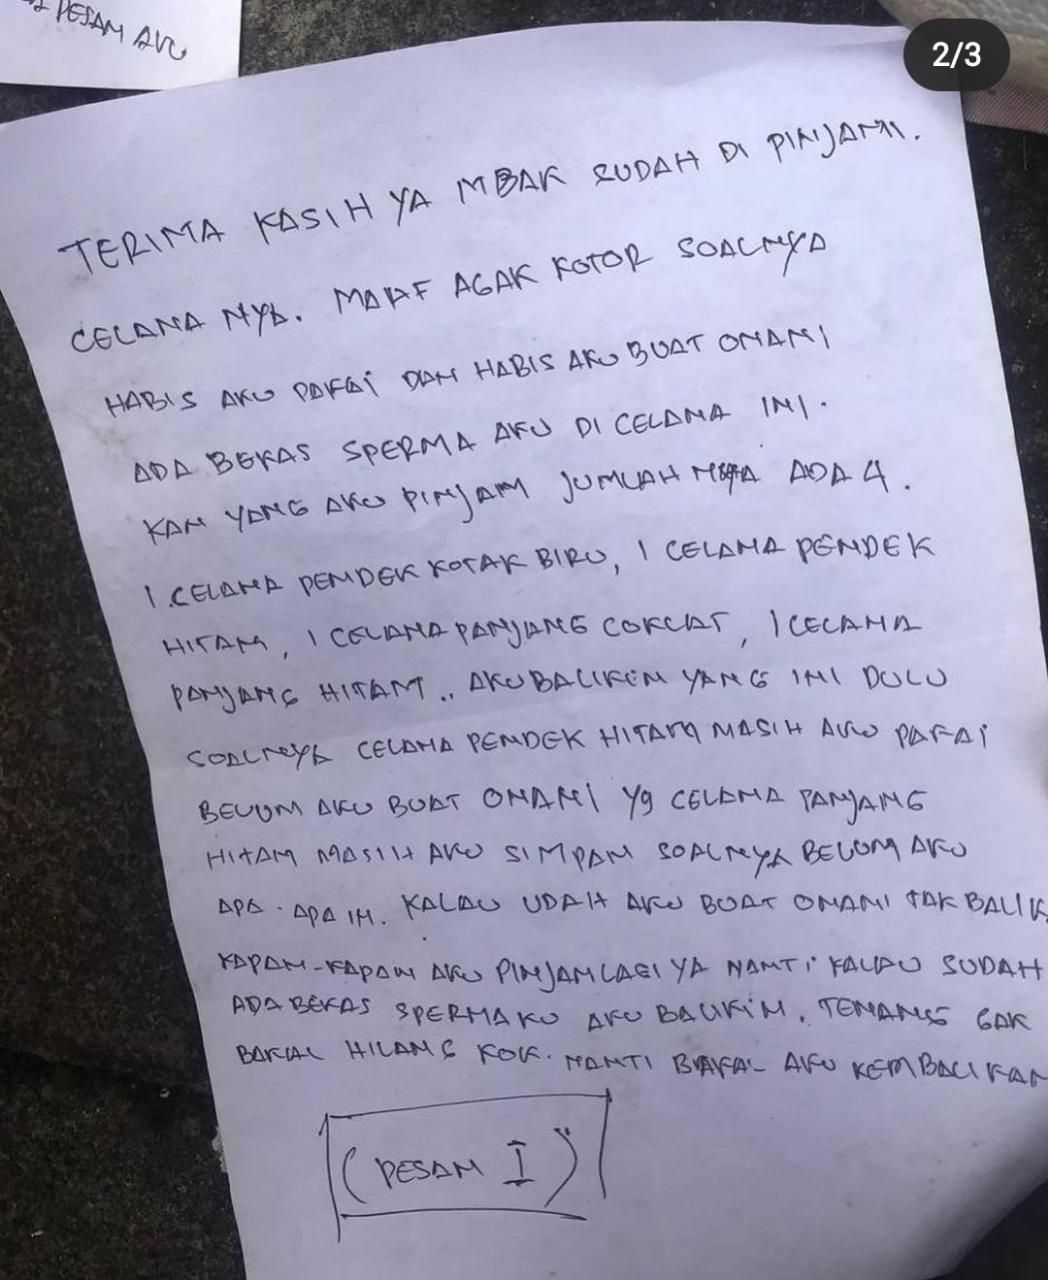 PESAM AKU
2/3
TERIMA KASIH YA MBAK SUDAH DI PINJAMI.
CELANA NYA. MAAF AGAK KOTOR SOALNYA
HABIS AKU PAKAI DAN HABIS AKU BUAT ONANI
ADA BEKAS SPERMA AKU DI CELANA INI.
KAN YANG AKU PINJAM JUMLAH NYA ADA 4.
1 CELANA PENDEK KOTAK BIRU, 1 CELANA PENDEK
HITAM, 1 CELANA PANJANG COKLAT, 1 CELANA
PANJANG HITAM.. AKU BALIKIN YANG INI DULU
SOALNYA CELANA PENDEK HITAM MASIH AKU PAKAI
BELUM AKU BUAT ONANI Yg CELANA PANJANG
HITAM MASIH AKU SIMPAN SOALNYA BELUM AKU
APA-APA IN. KALAU UDAH AKU BUAT ONANI TAK BALIK
KAPAN-KAPAN AKU PINJAM LAGI YA NANTI KALAU SUDAH
ADA BEKAS SPERMAKU AKU BALIKIN. TENANG GAK
BAKAL HILANG KOK. NANTI BAKAL AKU KEMBALIKAN
(PESAN I)